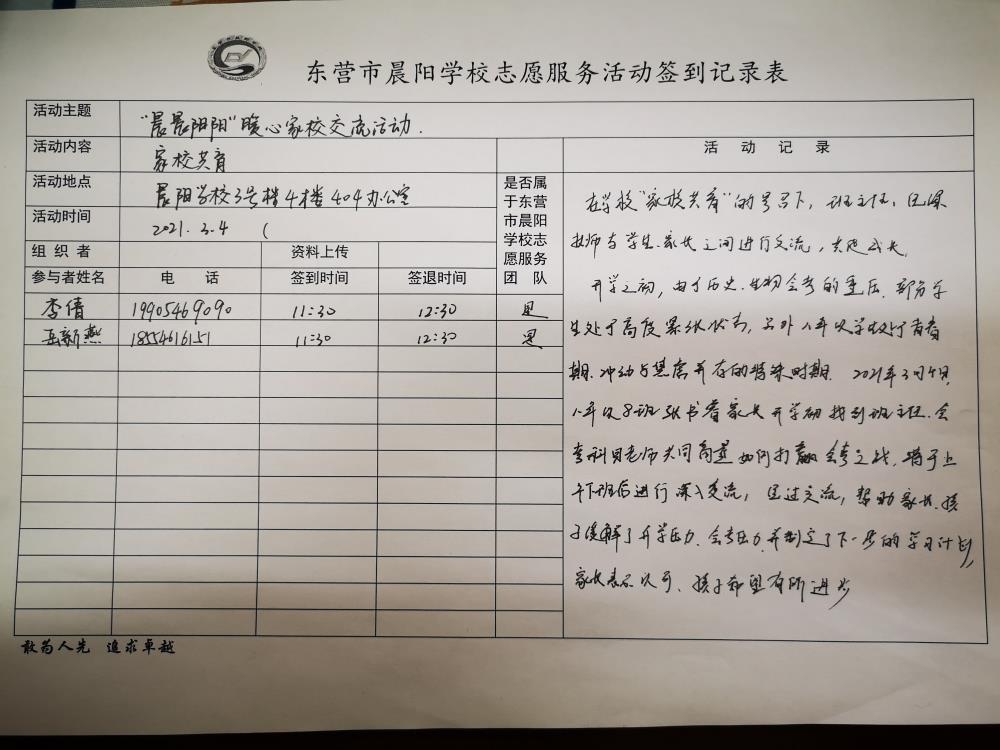 东营市晨阳学校志愿服务活动签到记录表
活动主题 “晨晨阳阳”暖心家校交流活动.
活动内容 家校共育
活动地点 晨阳学校3号楼4楼404办公室
活动时间 2021.3.4 (
组织者 资料上传
是否属于东营市晨阳学校志愿服务团队
参与者姓名 电话 签到时间 签退时间
李倩 19905469090 11:30 12:30 是
岳新燕 18554616151 11:30 12:30 是
活动记录
在学校“家校共育”的号召下，班主任、任课
教师与学生、家长之间进行交流，共促成长。
开学之初，由于历史、生物会考的重压，部分学
生处于高度紧张状态，另外八年级学生处于青春
期、冲动与焦虑并存的特殊时期. 2021年3月4日,
八年级8班张书睿家长开学初找到班主任、会
考科目老师共同商量如何打赢会考之战，将于上
午下班后进行深入交流，通过交流，帮助家长、孩
子缓解了开学压力、会考压力，并制定了下一步的学习计划,
家长表示认可、孩子希望有所进步
敢为人先 追求卓越